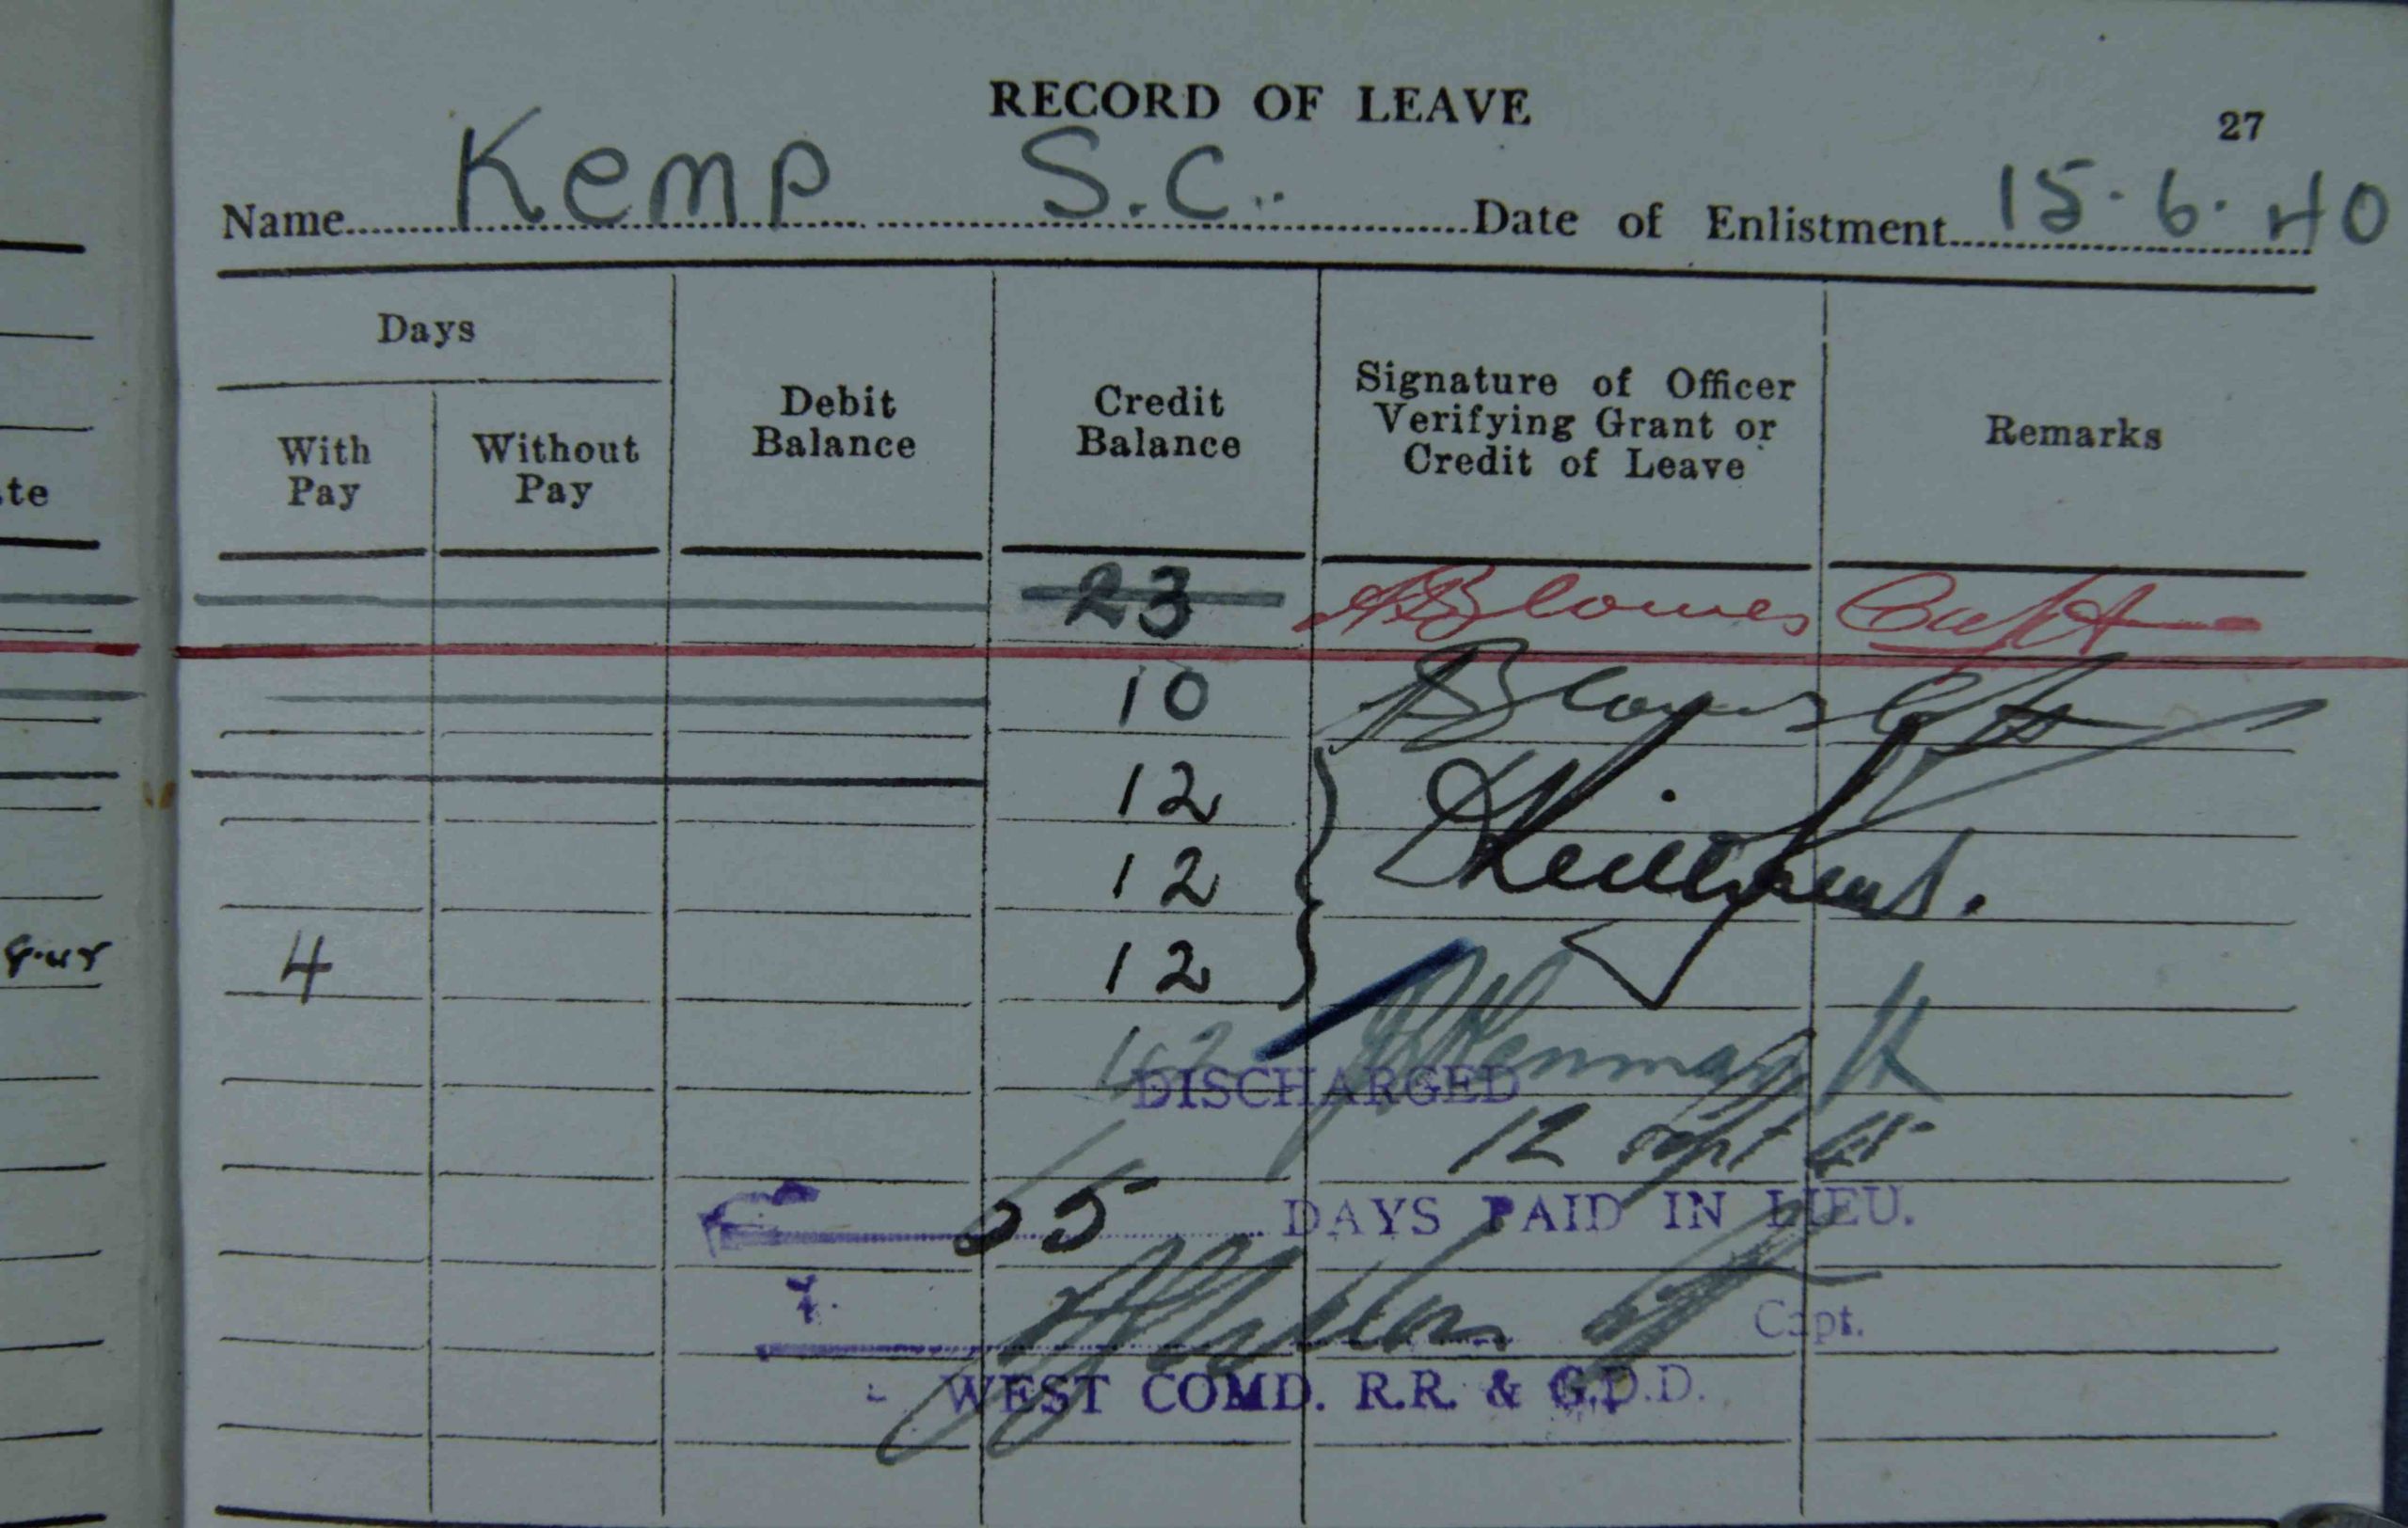 RECORD OF LEAVE
27
Name Kemp S.C. Date of Enlistment 15.6.40
Days
With Pay
Without Pay
Debit Balance
Credit Balance
Signature of Officer Verifying Grant or Credit of Leave
Remarks
te
23 Blowes Capt
10 Blowes Capt
12
12
4 12
DISCHARGED
12 Sept 45
DAYS PAID IN LIEU.
Capt.
WEST COMD. R.R. & G.D.D.